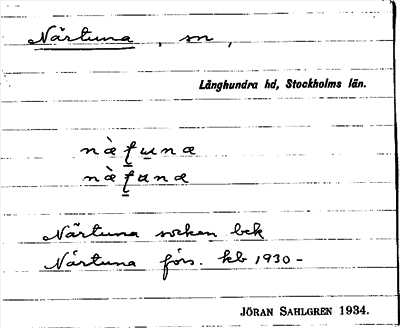 Närtuna, sn,
Långhundra hd, Stockholms län.
Närtuna socken bek
Närtuna förs. kb 1930 -
JÖRAN SAHLGREN 1934.